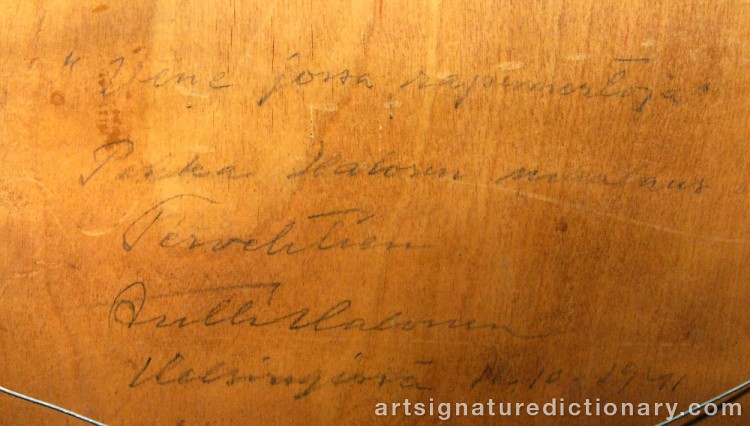 "Vene jossa rapumertoja"
Pekka Halosen maalaus
Tervehtien
Antti Halonen
Helsingissä 10.1941
artsignaturedictionary.com